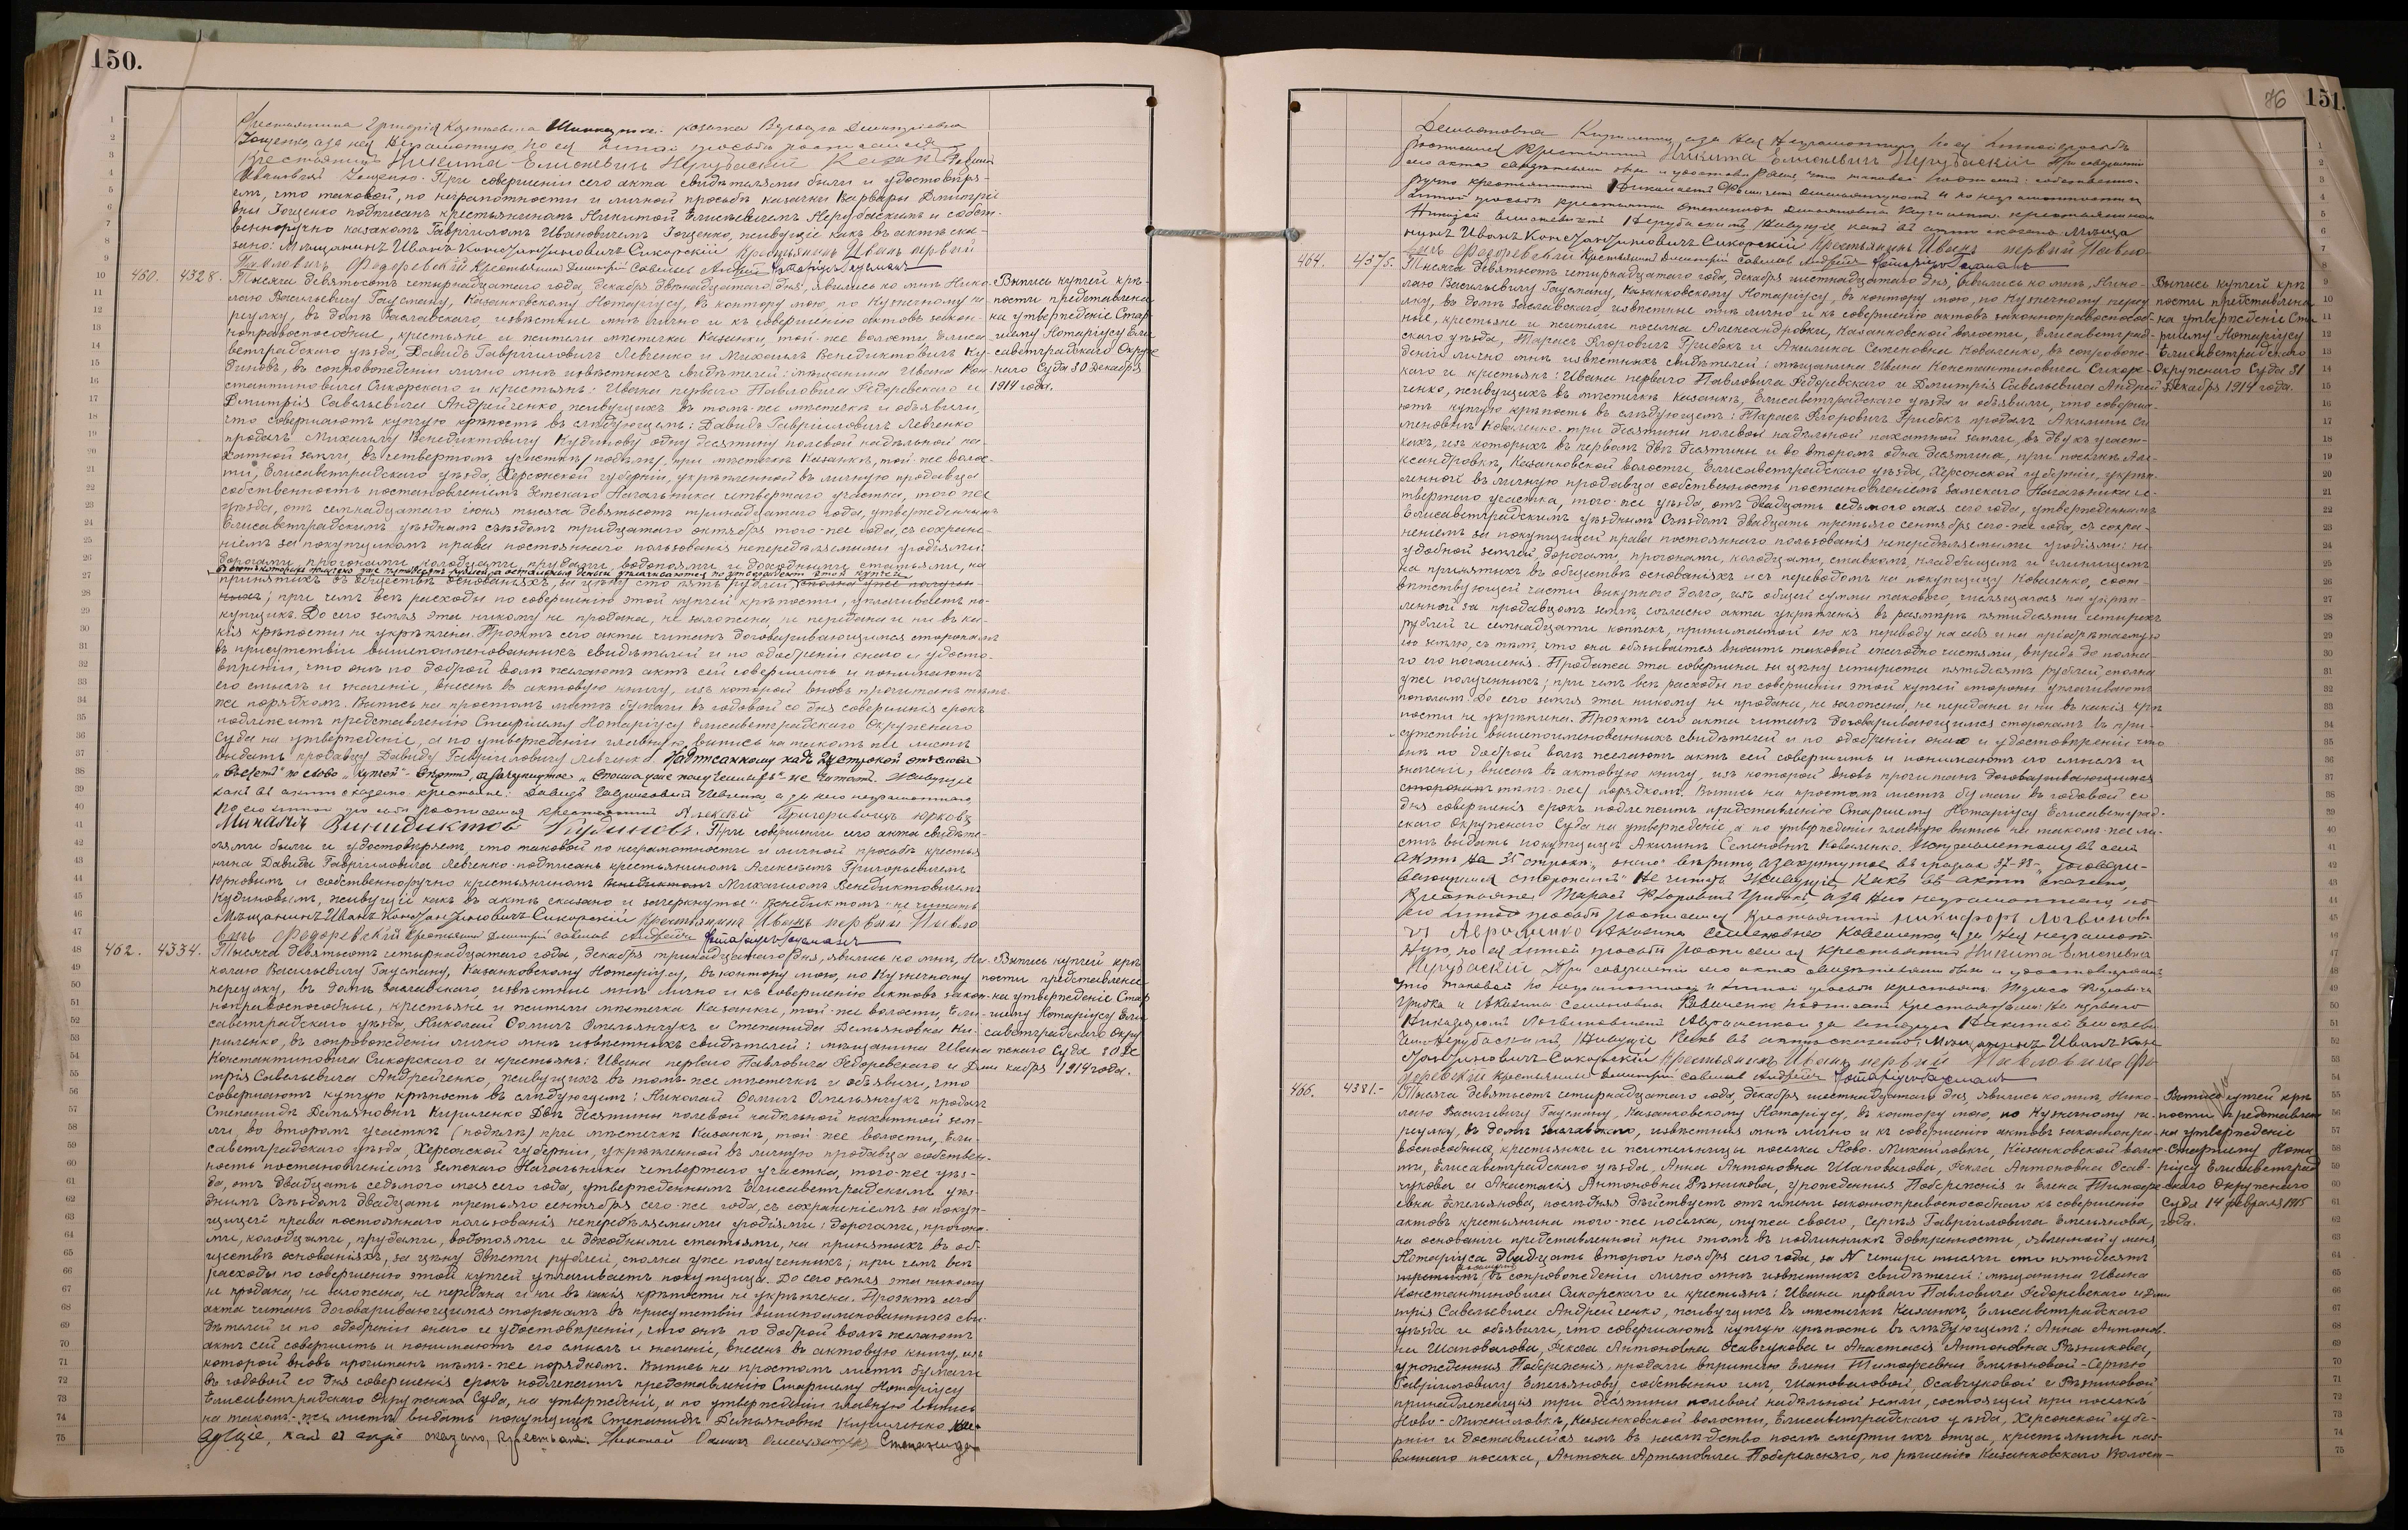 150.
Крестьянина Григорія казачка Варвара Дмитріевна
Гощенко, а за нея неграмотную, по ея личной просьбѣ росписался
крестьянинъ Никита Елисѣевичъ Нерубаскій Казакъ
Ивановъ Гощенко. При совершеніи сего акта свидѣтелями были и удостовѣря-
емъ, что таковой, по неграмотности и личной просьбѣ казачки Варвары Дмитріе-
вны Гощенко подписанъ крестьяниномъ Никитой Елисѣевичемъ Нерубаскимъ и собст-
венноручно казакомъ Гавріиломъ Ивановичемъ Гощенко, живущіе какъ въ актѣ ска-
зано: Мѣщанинъ Иванъ Константиновичъ Сикорскій Крестьянинъ Иванъ первый
Павловичъ Федоревскій Крестьянинъ Дмитрій Савельев Андрейч Нотаріусъ Гаусманъ
460. 4328. Тысяча девятьсотъ четырнадцатаго года, декабря двѣнадцатаго дня, явились ко мнѣ, Нико-
лаю Васильевичу Гаусману, Казанковскому Нотаріусу, въ контору мою, по Кузнечному пе-
реулку, въ домѣ Заславскаго, извѣстные мнѣ лично и къ совершенію актовъ закон-
ноправоспособные, крестьяне и жители мѣстечка Казанки, той-же волости, Елиса-
ветградскаго уѣзда, Давидъ Гавріиловичъ Левченко и Михаилъ Венедиктовичъ Ку-
диновъ, въ сопровожденіи лично мнѣ извѣстныхъ свидѣтелей: мѣщанина Ивана Кон-
стантиновича Сикорскаго и крестьянъ: Ивана перваго Павловича Федоревскаго и
Дмитрія Савельевича Андрейченко, живущихъ въ томъ-же мѣстечкѣ и объявили,
что совершаютъ купчую крѣпость въ слѣдующемъ: Давидъ Гавріиловичъ Левченко
продалъ Михаилу Венедиктовичу Кудинову одну десятину полевой надѣльной па-
хатной земли, въ четвертомъ участкѣ /подѣлѣ/, при мѣстечкѣ Казанкѣ, той-же волос-
ти, Елисаветградскаго уѣзда, Херсонской губерніи, укрѣпленной въ личную продавца
собственность постановленіемъ Земскаго Начальника четвертаго участка, того-же
уѣзда, отъ семнадцатаго іюня тысяча девятьсотъ тринадцатаго года, утвержденнымъ
Елисаветградскимъ уѣзднымъ съѣздомъ тридцатаго октября того-же года, съ сохране-
ніемъ за покупщикомъ права постояннаго пользованія непередѣляемыми угодіями:
дорогами, прогонами, колодцами, прудами, водопоями и доходными статьями, на
принятыхъ въ обществѣ основаніяхъ, за цѣну сто пять рублей, сполна уже получен-
ныхъ; при чемъ всѣ расходы по совершенію этой купчей крѣпости, уплачиваетъ по-
купщикъ. До сего земля эта никому не продана, не заложена, не передана и ни въ ка-
кія крѣпости не укрѣплена. Проэктъ сего акта читанъ договаривающимся сторонамъ
въ присутствіи вышепоименованныхъ свидѣтелей и по одобреніи онаго и удосто-
вѣреніи, что онѣ по доброй волѣ желаютъ актъ сей совершить и понимаютъ
его смыслъ и значеніе, внесенъ въ актовую книгу, изъ которой вновь прочитанъ тѣмъ-
же порядкомъ. Выпись на простомъ листѣ бумаги въ годовой со дня совершенія срокъ
подлежитъ представленію Старшему Нотаріусу Елисаветградскаго Окружнаго
Суда на утвержденіе, а по утвержденіи главную выпись на такомъ-же листѣ
выдать продавцу Давиду Гавріиловичу Левченко. Надписанному надъ 27 строкой отъ слова
до слова "купчей" вѣрить, а зачеркнутое "сполна уже полученныхъ" не читать. Живущіе
какъ въ актѣ сказано крестьяне: Давидъ Гавриловичъ Левченко, а за него неграмотнаго,
по его личной просьбѣ росписался крестьянинъ Алексѣй Григорьевичъ Юрковъ
Михаилъ Винидиктов Кудиновъ. При совершеніи сего акта свидѣте-
лями были и удостовѣряемъ, что таковой по неграмотности и личной просьбѣ крестья-
нина Давида Гавріиловича Левченко подписанъ крестьяниномъ Алексѣемъ Григорьевичемъ
Юрковымъ и собственноручно крестьяниномъ Венедиктомъ Михаиломъ Венедиктовичемъ
Кудиновымъ, живущіе какъ въ актѣ сказано и зачеркнутое "Венедиктомъ" не читать
Мѣщанинъ Иванъ Константиновичъ Сикорскій Крестьянинъ Иванъ первый Павло
вичъ Федоревскій Крестьянинъ Дмитрій Савельев Андрейч Нотаріусъ Гаусманъ
Выпись купчей крѣ-
пости представлена
на утвержденіе Стар-
шему Нотаріусу Ели-
саветградскаго Окруж-
наго Суда 30 декабря
1914 года.
462. 4334. Тысяча девятьсотъ четырнадцатаго года, декабря тринадцатаго дня, явились ко мнѣ, Ни-
колаю Васильевичу Гаусману, Казанковскому Нотаріусу, въ контору мою, по Кузнечному
переулку, въ домѣ Заславскаго, извѣстные мнѣ лично и къ совершенію актовъ закон-
ноправоспособные, крестьяне и жители мѣстечка Казанки, той-же волости, Ели-
саветградскаго уѣзда, Николай Фомичъ Омельянчукъ и Степанида Демьяновна Ки-
риленко, въ сопровожденіи лично мнѣ извѣстныхъ свидѣтелей: мѣщанина Ивана
Константиновича Сикорскаго и крестьянъ: Ивана перваго Павловича Федоревскаго и Дми-
трія Савельевича Андрейченко, живущихъ въ томъ-же мѣстечкѣ и объявили, что
совершаютъ купчую крѣпость въ слѣдующемъ: Николай Фомичъ Омельянчукъ продалъ
Степанидѣ Демьяновнѣ Кириленко двѣ десятины полевой надѣльной пахатной зем-
ли во второмъ участкѣ (подѣлѣ) при мѣстечкѣ Казанкѣ, той-же волости, Ели-
саветградскаго уѣзда, Херсонской губерніи, укрѣпленной въ личную продавца собствен-
ность постановленіемъ Земскаго Начальника четвертаго участка, того-же уѣз-
да, отъ двадцать седьмого мая сего года, утвержденнымъ Елисаветградскимъ уѣз-
днымъ Съѣздомъ двадцать третьяго сентября сего-же года, съ сохраненіемъ за покуп-
щицей права постояннаго пользованія непередѣляемыми угодіями: дорогами, прогона-
ми, колодцами, прудами, водопоями и доходными статьями, на принятыхъ въ об-
ществѣ основаніяхъ, за цѣну двѣсти рублей, сполна уже полученныхъ; при чемъ всѣ
расходы по совершенію этой купчей уплачиваетъ покупщица. До сего земля эта никому
не продана, не заложена, не передана и ни въ какія крѣпости не укрѣплена. Проэктъ сего
акта читанъ договаривающимся сторонамъ въ присутствіи вышепоименованныхъ сви-
дѣтелей и по одобреніи онаго и удостовѣреніи, что онѣ по доброй волѣ желаютъ
актъ сей совершить и понимаютъ его смыслъ и значеніе, внесенъ въ актовую книгу, изъ
которой вновь прочитанъ тѣмъ-же порядкомъ. Выпись на простомъ листѣ бумаги
въ годовой со дня совершенія срокъ подлежитъ представленію Старшему Нотаріусу
Елисаветградскаго Окружнаго Суда, на утвержденіе, а по утвержденіи главную выпись
на такомъ-же листѣ выдать покупщицѣ Степанидѣ Демьяновнѣ Кириленко. Жи-
вущіе, какъ въ актѣ сказано, крестьяне: Николай Фомич Омельянчукъ Степанида
Выпись купчей крѣ-
пости представлена
на утвержденіе Стар-
шему Нотаріусу Ели-
саветградскаго Окру-
жнаго Суда 30 де-
кабря 1914 года.
86 151.
Демьяновна Кириленко, а за нея неграмотную, по ея личной просьбѣ
росписался крестьянинъ Никита Елисѣевичъ Нерубаскій При совершеніи
сего акта свидѣтелями были и удостовѣряемъ, что таковой подписанъ: собственно-
ручно крестьяниномъ Николаемъ Фомичемъ Омельянчукомъ и по неграмотности и
личной просьбѣ крестьянки Степаниды Демьяновны Кириленко крестьяниномъ
Никитой Елисѣевичемъ Нерубаскимъ, живущіе какъ въ актѣ сказано: Мѣща
нинъ Иванъ Константиновичъ Сикорскій Крестьянинъ Иванъ первый Павло
вичъ Федоревскій Крестьянинъ Дмитрій Савельев Андрейч Нотаріусъ Гаусманъ
464. 4375. Тысяча девятьсотъ четырнадцатаго года, декабря шестнадцатаго дня, явились ко мнѣ, Нико-
лаю Васильевичу Гаусману, Казанковскому Нотаріусу, въ контору мою, по Кузнечному переу-
лку, въ домѣ Заславскаго, извѣстные мнѣ лично и къ совершенію актовъ законноправоспособ-
ные, крестьяне и жители поселка Александровки, Казанковской волости, Елисаветград-
скаго уѣзда, Тарасъ Федоровичъ Грибокъ и Акилина Семеновна Коваленко, въ сопровож-
деніи лично мнѣ извѣстныхъ свидѣтелей: мѣщанина Ивана Константиновича Сикорс-
каго и крестьянъ: Ивана перваго Павловича Федоревскаго и Дмитрія Савельевича Андрей-
ченко, живущихъ въ мѣстечкѣ Казанкѣ, Елисаветградскаго уѣзда и объявили, что соверша-
ютъ купчую крѣпость въ слѣдующемъ: Тарасъ Федоровичъ Грибокъ продалъ Акилинѣ Се-
меновнѣ Коваленко три десятины полевой надѣльной пахатной земли, въ двухъ участ-
кахъ, изъ которыхъ въ первомъ двѣ десятины и во второмъ одна десятина, при поселкѣ Але-
ксандровкѣ, Казанковской волости, Елисаветградскаго уѣзда, Херсонской губерніи, укрѣп-
ленной въ личную продавца собственность постановленіемъ Земскаго Начальника че-
твертаго участка, того-же уѣзда, отъ двадцать седьмого мая сего года, утвержденнымъ
Елисаветградскимъ уѣзднымъ Съѣздомъ двадцать третьяго сентября сего-же года, съ сохра-
неніемъ за покупщицей права постояннаго пользованія непередѣляемыми угодіями: не-
удобной землей, дорогами, прогонами, колодцами, ставкомъ, кладбищемъ и глинищемъ
на принятыхъ въ обществѣ основаніяхъ и съ переводомъ на покупщицу Коваленко, соот-
вѣтствующей части выкупного долга, изъ общей суммы такового, числящагося на укрѣп-
ленной за продавцомъ землѣ, согласно акта укрѣпленія въ размѣрѣ пятидесяти четырехъ
рублей и семнадцати копѣекъ, принимаемой ею къ переводу на себя и на пріобрѣтаемую
ею землю, съ тѣмъ, что она обязывается вносить таковой ежегодно частями, впредь до полна-
го его погашенія. Продажа эта совершена за цѣну четыреста пятьдесятъ рублей, сполна
уже полученныхъ; при чемъ всѣ расходы по совершенію этой купчей стороны уплачиваютъ
пополамъ. До сего земля эта никому не продана, не заложена, не передана и ни въ какія крѣ-
пости не укрѣплена. Проэктъ сего акта читанъ договаривающимся сторонамъ въ при-
сутствіи вышепоименованныхъ свидѣтелей и по одобреніи онаго и удостовѣреніи что
онѣ по доброй волѣ желаютъ актъ сей совершить и понимаютъ его смыслъ и
значеніе, внесенъ въ актовую книгу, изъ которой вновь прочитанъ договаривающимся
сторонамъ тѣмъ-же порядкомъ. Выпись на простомъ листѣ бумаги въ годовой со
дня совершенія срокъ подлежитъ представленію Старшему Нотаріусу Елисаветград-
скаго Окружнаго Суда на утвержденіе, а по утвержденіи главную выпись на такомъ-же ли-
стѣ выдать покупщицѣ Акилинѣ Семеновнѣ Коваленко. Исправленному въ семъ
актѣ на 35 строкѣ "онаго" вѣрить, а зачеркнутое въ строкахъ 37-38 "договари-
вающимся сторонамъ" не читать. Живущіе, какъ въ актѣ сказано,
крестьяне: Тарасъ Федоровичъ Грибокъ, а за него неграмотнаго, по
его личной просьбѣ росписался крестьянинъ Никифоръ Логвинови
чъ Авраменко Акилина Семеновна Коваленко, а за нея неграмот-
ную, по ея личной просьбѣ росписался крестьянинъ Никита Елисѣевичъ
Нерубаскій При совершеніи сего акта свидѣтелями были и удостовѣряемъ
что таковой по неграмотности и личной просьбѣ крестьянъ: Тараса Федоровича
Грибка и Акилины Семеновны Коваленко подписанъ крестьянами: за перваго
Никифоромъ Логвиновичемъ Авраменкомъ за вторую Никитой Елисѣеви-
чемъ Нерубаскимъ, живущіе какъ въ актѣ сказано: Мѣщанинъ Иванъ Кон-
стантиновичъ Сикорскій Крестьянинъ Иванъ первый Павловичъ Фе-
доревскій Крестьянинъ Дмитрій Савельев Андрейч Нотаріусъ Гаусманъ
Выпись купчей крѣ-
пости представлена
на утвержденіе Ста-
ршему Нотаріусу
Елисаветградскаго
Окружнаго Суда 31
Декабря 1914 года.
466. 4381.- Тысяча девятьсотъ четырнадцатаго года, декабря шестнадцатаго дня, явились ко мнѣ, Нико-
лаю Васильевичу Гаусману, Казанковскому Нотаріусу, въ контору мою, по Кузнечному пе-
реулку, въ домѣ Заславскаго, извѣстныя мнѣ лично и къ совершенію актовъ законнопра-
воспособныя, крестьянки и жительницы поселка Ново-Михайловки, Казанковской волос-
ти, Елисаветградскаго уѣзда, Анна Антоновна Шаповалова, Фекла Антоновна Осав-
чукова и Анастасія Антоновна Рѣзникова, урожденныя Побережнія и Елена Тимофе-
евна Емельянова, послѣдняя дѣйствуетъ отъ имени законноправоспособнаго къ совершенію
актовъ крестьянина того-же поселка, мужа своего, Сергѣя Гавріиловича Емельянова,
на основаніи представленной при этомъ въ подлинникѣ довѣренности, явленной у меня
Нотаріуса двадцать второго ноября сего года, за N четыре тысячи сто пятьдесятъ
третьимъ, въ сопровожденіи лично мнѣ извѣстныхъ свидѣтелей: мѣщанина Ивана
Константиновича Сикорскаго и крестьянъ: Ивана перваго Павловича Федоревскаго и Дми-
трія Савельевича Андрейченко, живущихъ въ мѣстечкѣ Казанкѣ, Елисаветградскаго
уѣзда и объявили, что совершаютъ купчую крѣпость въ слѣдующемъ: Анна Антонов-
на Шаповалова, Фекла Антоновна Осавчукова и Анастасія Антоновна Рѣзникова,
урожденныя Побережнія, продали вѣрителю Елены Тимофеевны Емельяновой-Сергѣю
Гавріиловичу Емельянову, собственно имъ, Шаповаловой, Осавчуковой и Рѣзниковой
принадлежащія три десятины полевой надѣльной земли, состоящей при поселкѣ
Ново-Михайловкѣ, Казанковской волости, Елисаветградскаго уѣзда, Херсонской губе-
рніи и доставшейся имъ въ наслѣдство послѣ смерти ихъ отца, крестьянина наз-
ваннаго поселка, Антона Артемовича Побережнаго, по рѣшенію Казанковскаго Волост-
Выпись купчей крѣ-
пости представлена
на утвержденіе
Старшему Нота-
ріусу Елисаветград-
скаго Окружнаго
Суда 14 февраля 1915
года.